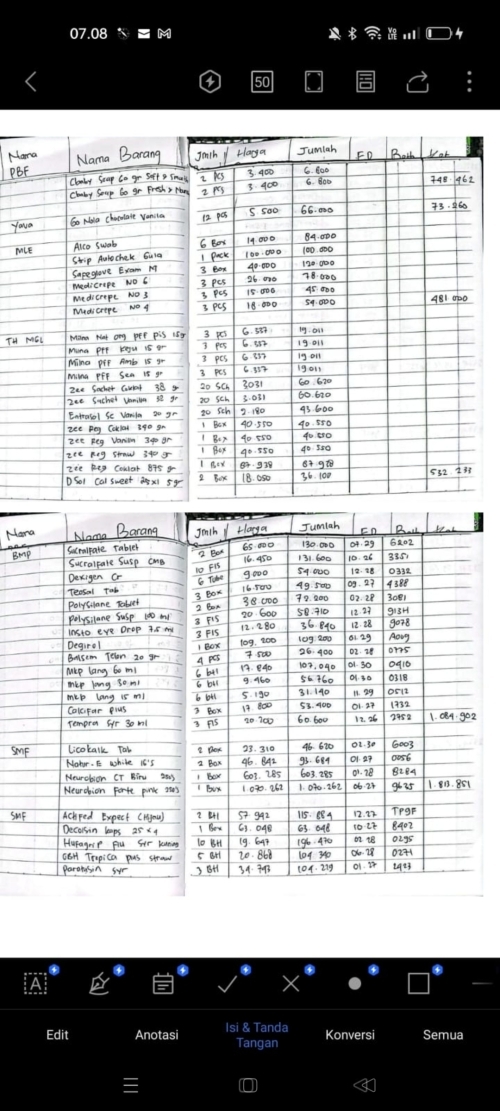 07.08
50
Nama PBF Nama Barang Jmlh Harga Jumlah ED Bath Ket
Chuby Soap 60 gr 2 pcs 3.400 6.800
Chuby Soap 60 gr Fresh 2 pcs 3.400 6.800 748.462
Yava Go Nola Chocolate Vanila 12 pcs 5 500 66.000 73.260
MLE Alco Swab 6 Box 14.000 84.000
Strip Autochek Gula 1 Pack 100.000 100.000
Safeglove Exam M 3 Box 40.000 120.000
Medicrepe NO 6 3 pcs 26.000 78.000
Medicrepe NO 3 3 pcs 15.000 45.000
Medicrepe NO 4 3 pcs 18.000 54.000 481.000
TH MGL Mina Nat org pff pis 15 gr 3 pcs 6.337 19.011
Mina Pff Keju 15 gr 3 pcs 6.337 19.011
Mina Pff Amb 15 gr 3 pcs 6.337 19.011
Mina PFF Sea 15 gr 3 pcs 6.337 19.011
Zee Sachet Coklat 38 gr 20 Sch 3031 60.620
Zee Sachet Vanila 38 gr 20 sch 3.031 60.620
Entrasol Sc Vanila 20 gr 20 Sch 2.180 43.600
Zee Reg Coklat 340 gr 1 Box 40.550 40.550
Zee Reg Vanilla 340 gr 1 Box 40 550 40.550
Zee Reg Straw 340 gr 1 Box 40.550 40.550
Zee Reg Coklat 875 gr 1 Box 87.938 87.938
D Sol Cal sweet 25x1 5 gr 2 Box 18.050 36.100 532.233
Nama Nama Barang Jmlh Harga Jumlah ED Bath Ket
BMP Sucralfate Tablet 2 Box 65.000 130.000 04.29 6202
Sucralfate Susp CMB 10 Fls 16.450 131.600 10.26 3351
Dexigen Cr 6 Tube 9.000 54.000 12.28 0332
Teosal Tab 3 Box 16.500 49.500 09.27 4388
Polysilane Tablet 2 Box 38.000 72.200 02.28 3081
Polysilane Susp 100 ml 3 FlS 20 601 58.710 12.27 913H
Insto eye Drop 7.5 ml 3 FlS 12.280 36.840 12.28 9078
Degirol 1 Box 109.200 109.200 01.29 A009
Balsem Telon 20 gr 4 pcs 7.500 26.400 02.28 0775
Mkp lang 60 ml 6 btl 17.840 107.040 01.30 0416
Mkp lang 30 ml 6 btl 9.460 56.760 01.30 0318
mkp lang 15 ml 6 btl 5.190 31.140 11.29 0512
Calcifar plus 3 Box 17 800 53.400 01.27 1732
Tempra Syr 30 ml 3 FlS 20.200 60.600 12.26 2752 1.084.902
SMF Licokalk Tab 2 Box 23.310 46.620 02.30 6003
Natur-E White 16's 2 Box 46.842 93.684 01.27 0056
Neurobion CT Biru 1 Box 603.285 603.285 01.28 8284
Neurobion Forte pink 1 Box 1.070.262 1.070.262 06.27 9635 1.813.851
SMF Actifed Expect (Hijau) 2 Btl 57.942 115.884 12.27 TP9F
Decolsin kaps 25 x 4 1 Box 63.048 63.048 10.27 8402
Hufagrip Flu Syr kuning 10 Btl 19.647 196.470 02 28 0295
OBH Tropica plus straw 5 Btl 20.868 104.340 06.28 0271
Paratusin syr 3 Btl 34.743 104.229 01.27 2423
Edit Anotasi Isi & Tanda Tangan Konversi Semua